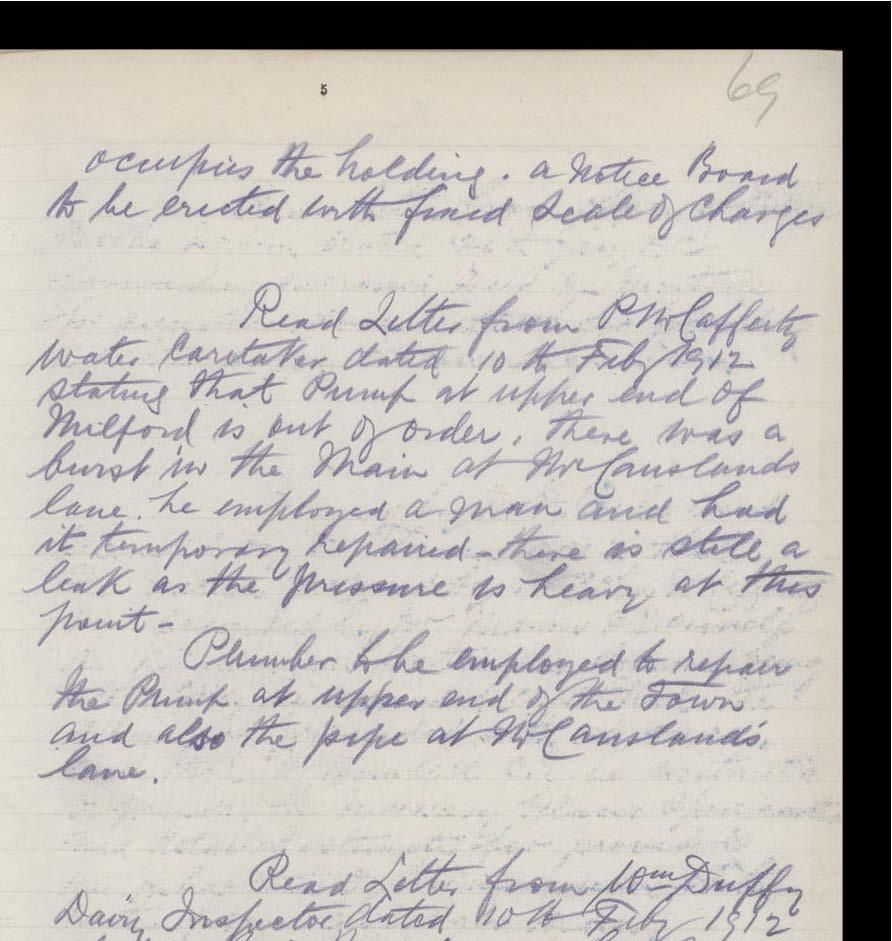 5
69
occupies the holding. a Notice Board
to be erected with fixed Scale of Charges
Read Letter from P McCafferty
Water Caretaker dated 10th Feby 1912
stating that Pump at upper end of
Milford is out of order, there was a
burst in the Main at McCauslands
lane. he employed a man and had
it temporary repaired - there is still a
leak as the pressure is heavy at this
point -
Plumber to be employed to repair
the Pump at upper end of the Town
and also the pipe at McCausland's
lane.
Read Letter from Wm Duffy
Dairy Inspector dated 10th Feby 1912